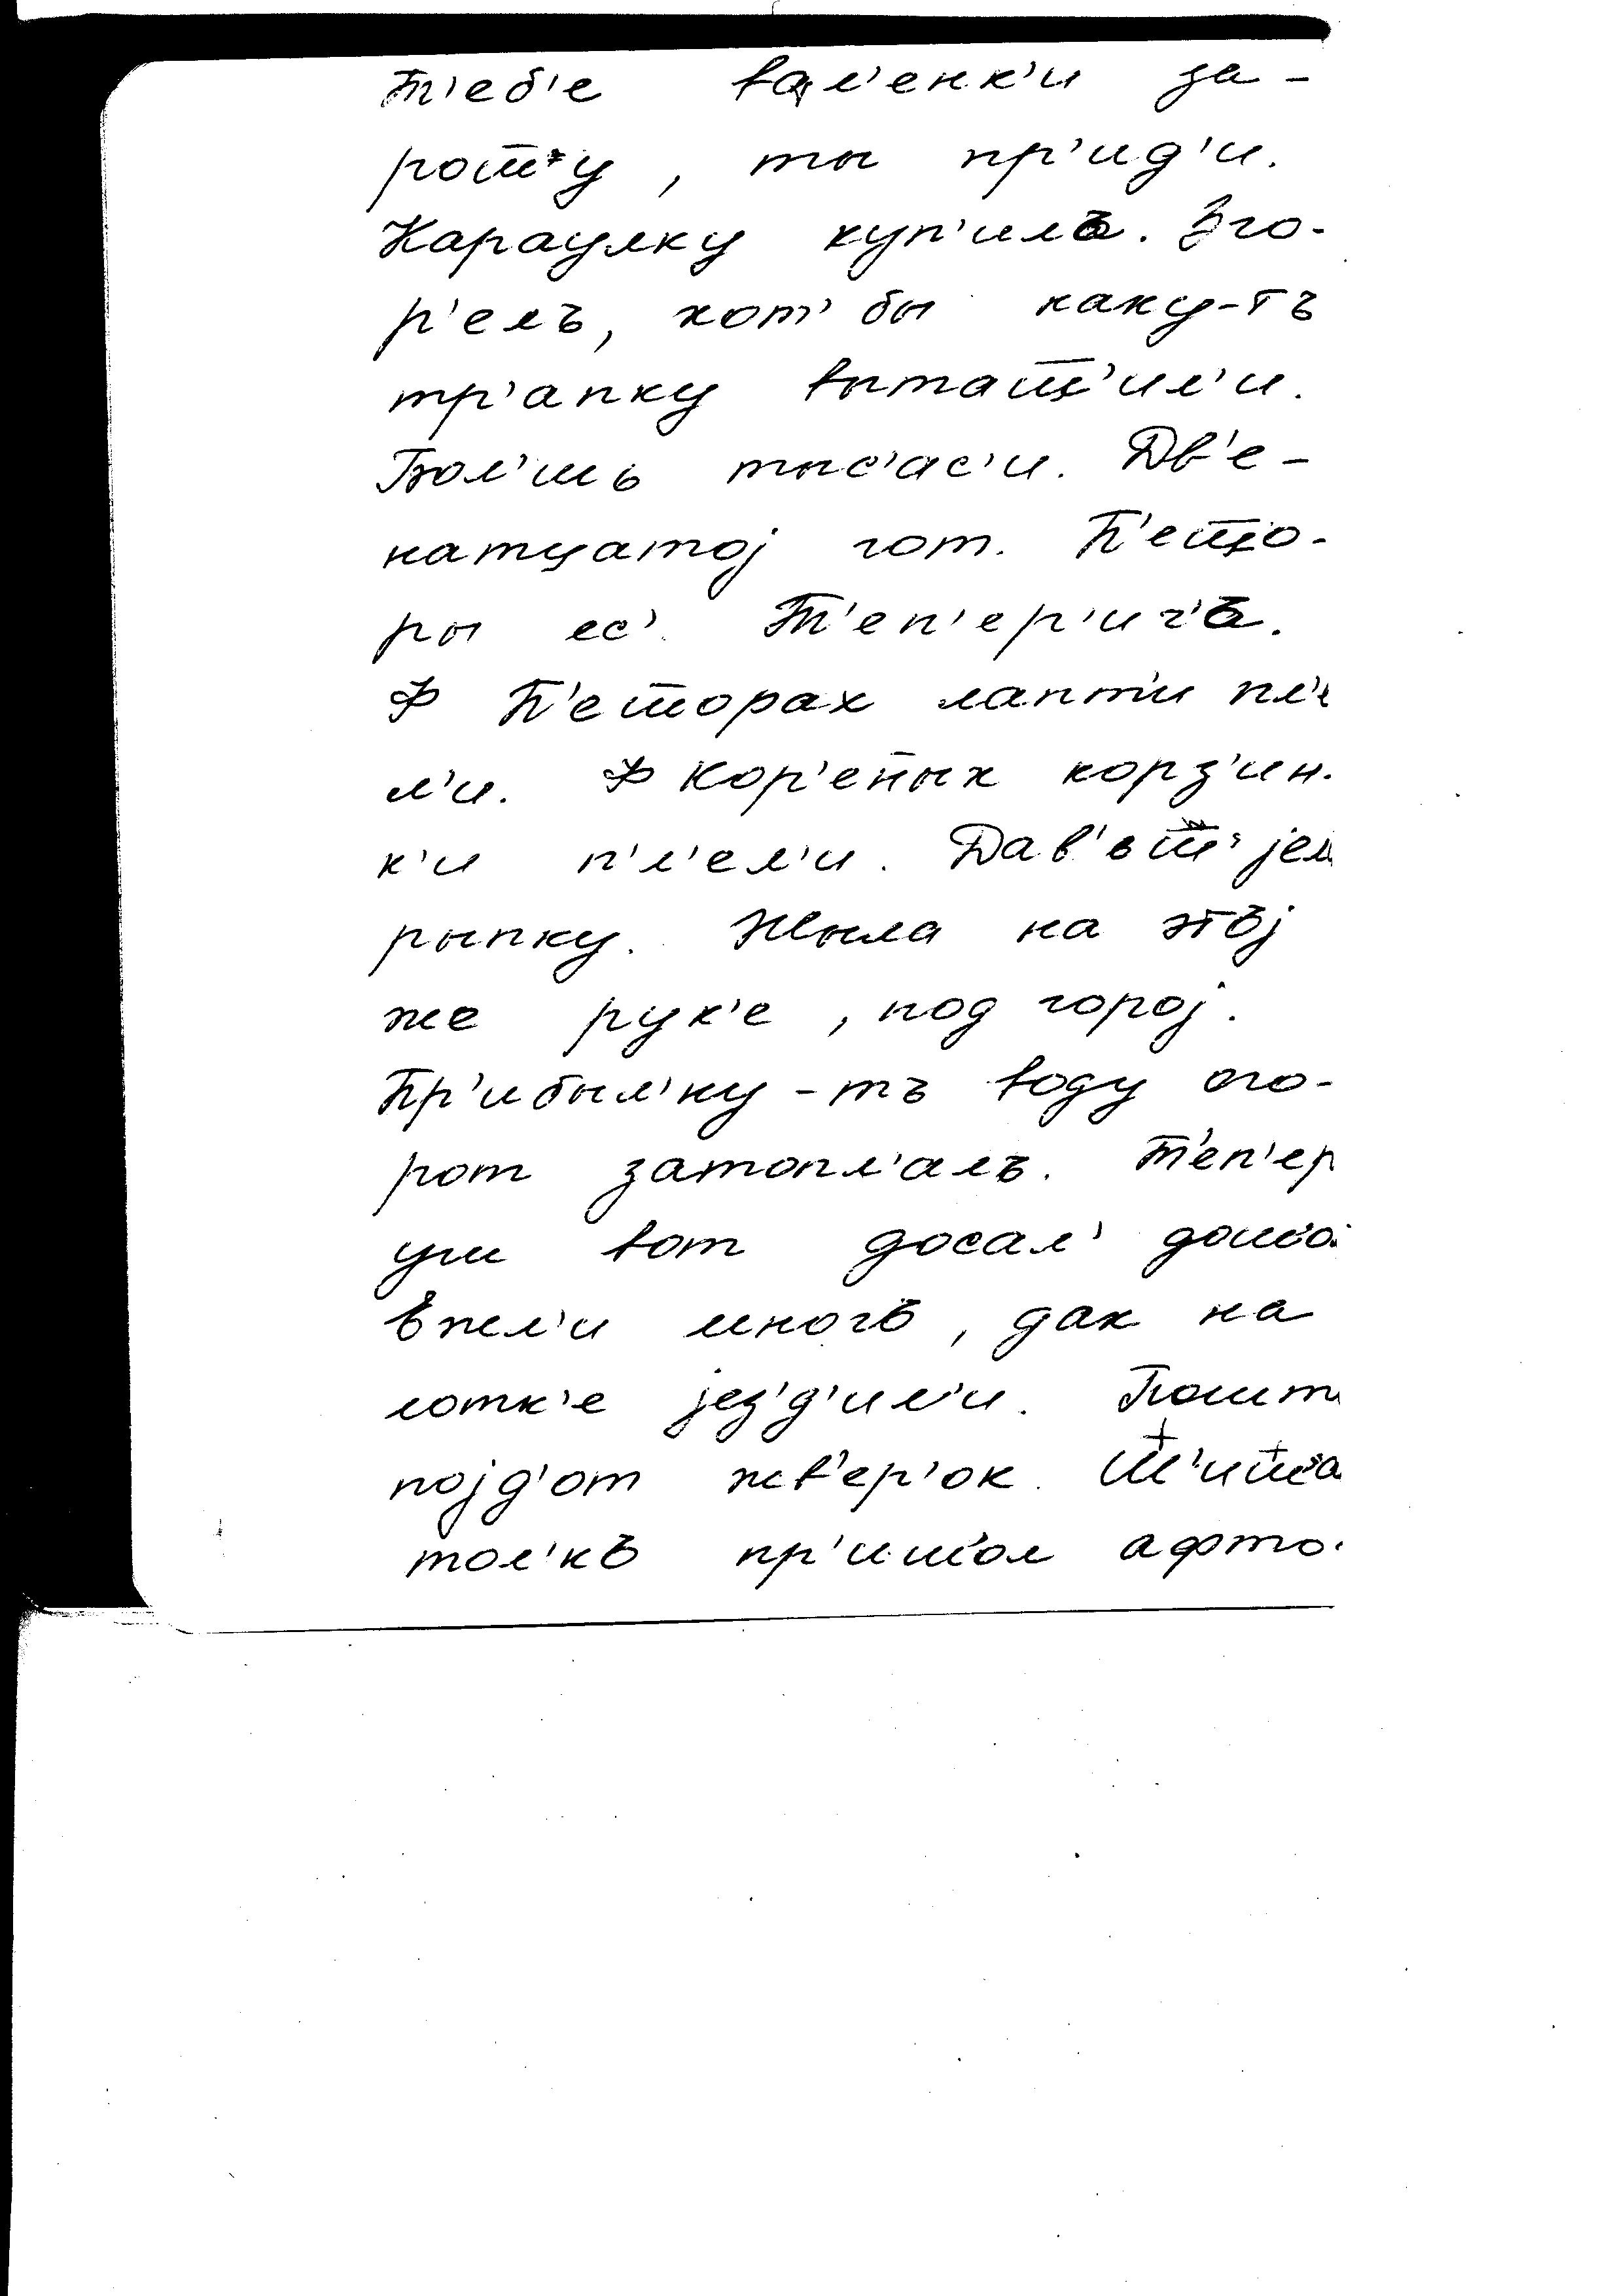 т'еб'е вал'енк'и за-
рош̅'у, ты пр'ид'и.
Караулку куп'илъ. Зго-
р'елъ, хот' бы каку-тъ
тр'апку выташ̅'ил'и.
Бол'шь тыс'ас'и. Дв'е-
натцатој гот. П'ешо-
ры ес'. Т'еп'ер'ич'ь.
Ф П'ешорах лапти пл'е
л'и. Ф Кор'еных корз'ин-
к'и п'л'ел'и. Дав'ьш' јел
рыпку. Жыла на этъј
же рук'е, под горој.
Пр'ибыл'ну-тъ воду ого-
рот затопл'алъ. Т'еп'ер
уш вот досал'
Ежл'и многъ, дак на
лотк'е јез'д'ил'и.
појд'от жв'ер'ок.
тол'къ пр'ишол афто-